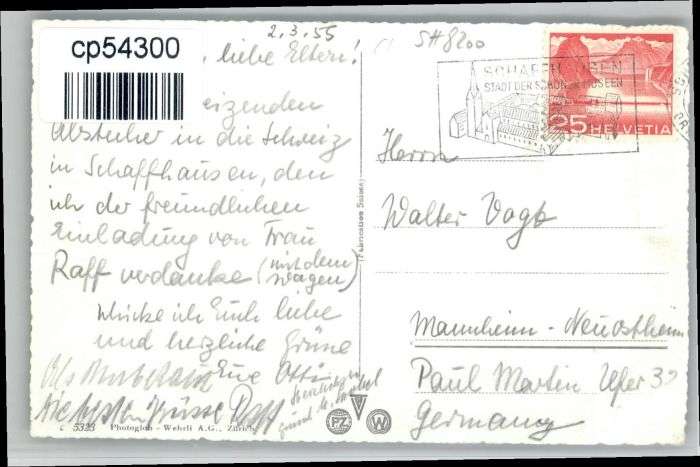 cp54300
2.3.55
liebe Eltern!
SH8200
eizenden
Abstecher in die Schweiz
in Schaffhausen, den
ich der freundlichen
Einladung von Frau
Raff verdanke (mit dem Wagen)
schicke ich Euch liebe
und herzliche Grüsse
Als Eure
die besten Grüsse Raff
c 5323 Photoglob - Wehrli A.G., Zürich
PZ W
STADT DER SCHÖNEN MUSEEN
25 HELVETIA
Herrn
Walter Vogt
Mannheim - Neuostheim
Paul Martin Ufer 39
Germany